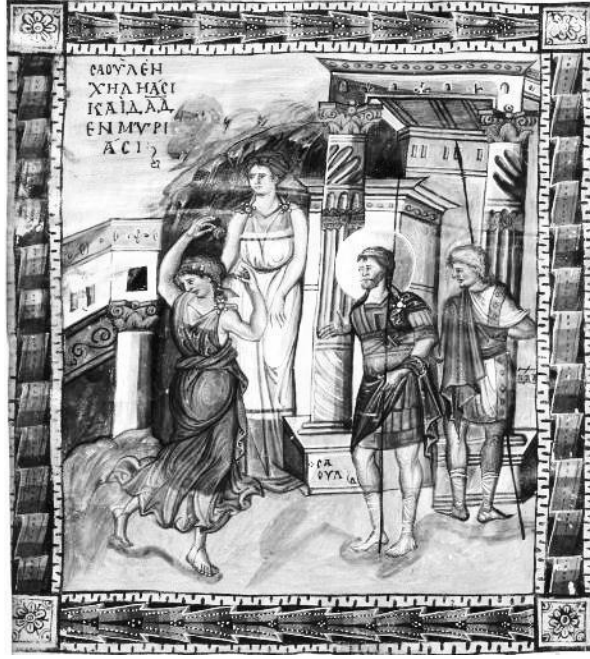 CΑΟῪΛΕΝ
ΧΗΛΗΑCΙ
ΚΑΙΔΑΔ
ΕΝΜΥΡΙ
ΑCΙ
CΑ
ΟΥΛ